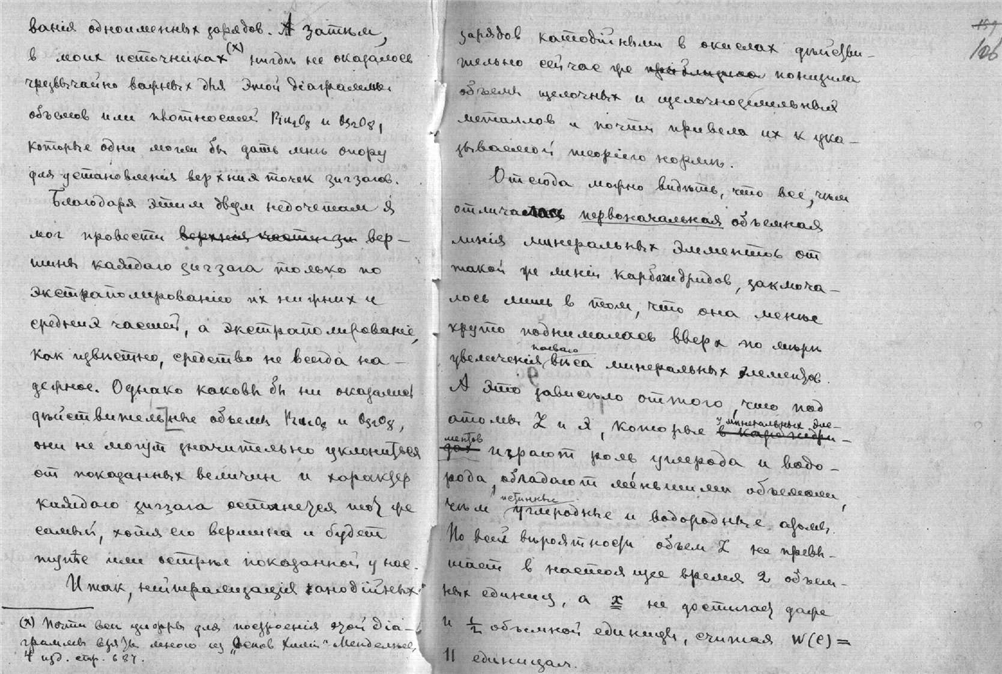 ванія одноименныхъ зарядов. А затѣм,
в моих источниках (х) нигдѣ не оказалось
чрезвычайно важных для этой діаграммы
объемов или плотностей Ru₂O₈ и Os₂O₈,
которые одни могли бы дать мнѣ опору
для установленія верхних точек зигзагов.
Благодаря этим двум недочетам я
мог провести верхнія части зи вер-
шины каждаго зигзага только по
экстраполированію их нижних и
средних частей, а экстраполированіе,
как извѣстно, средство не всегда на-
дежное. Однако каковы бы ни оказались
дѣйствительные объемы Ru₂O₈ и Os₂O₈,
они не могут значительно уклониться
от показанных величин и характер
каждаго зигзага останется тот же
самый, хотя его вершина и будет
тупѣе или острѣе показанной у нас.
Итак, нейтрализація анодійных
(х) Почти все цифры для построенія этой діа-
граммы взяты много из „Основ Химіи" Менделѣева,
4 изд. стр. 687.
106
зарядов катодійными в окислах дѣйстви-
тельно сейчас же понизила
объемы щелочных и щелочноземельных
металлов и почти привела их к ука-
зываемой теоріею нормѣ.
Отсюда можно видѣть, что всё, чѣм
отличалась первоначальная объемная
линія минеральных элементов от
такой же линіи карбгидридов, заключа-
лось лишь в том, что она менѣе
круто поднималась вверх по мѣрѣ
увеличенія паевого вѣса минеральных элементов.
А это зависѣло от того, что под
атомы Z и х, которые у минеральных эле-
ментов играют роль углерода и водо-
рода обладают меньшими объемами,
чѣм истинные углеродные и водородные атомы.
По всей вѣроятности объем Z не превы-
шает в настоящее время 2 объем-
ных единиц, а х не достигает даже
и ½ объемной единицы, считая W(C)=
11 единицам.